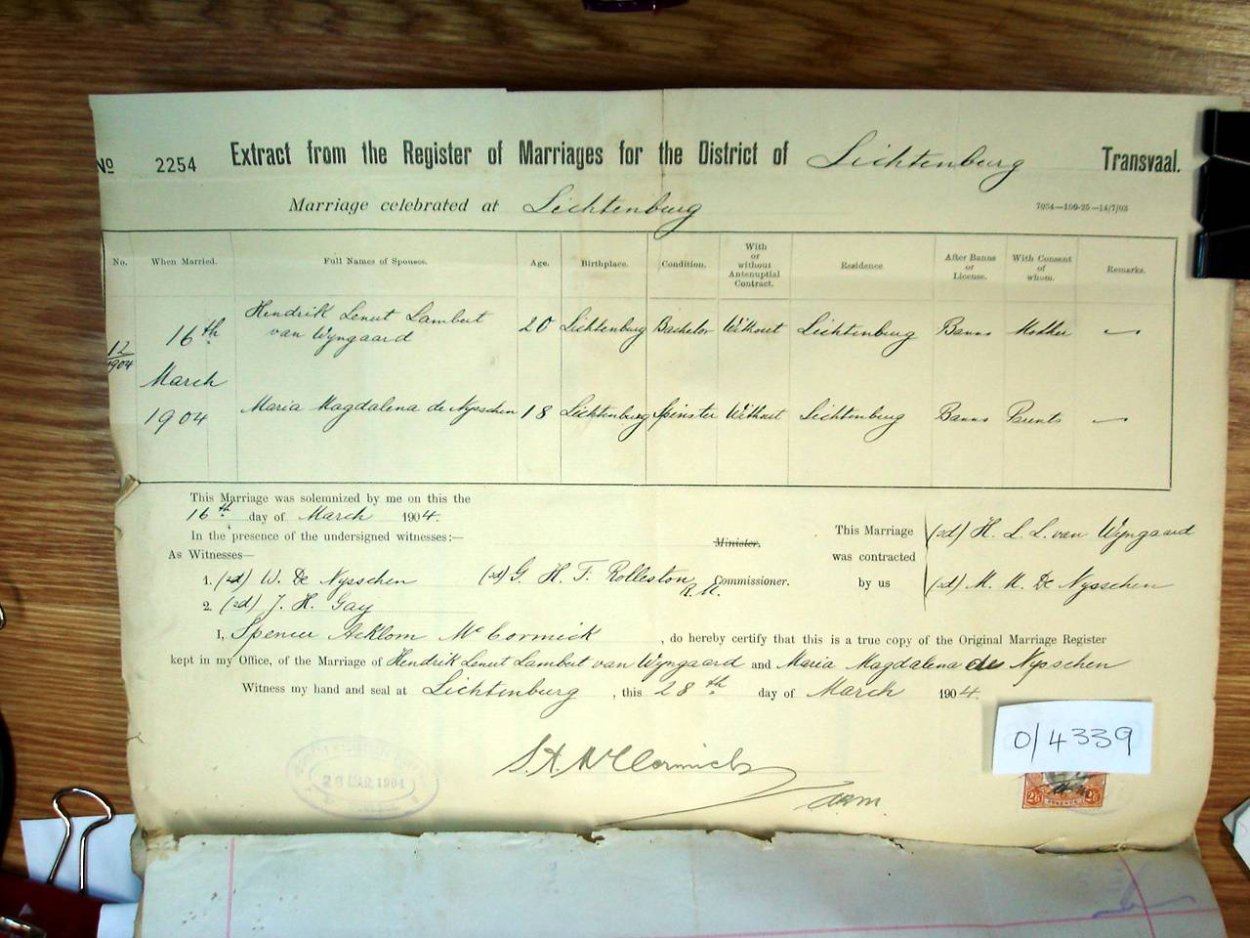 No 2254 Extract from the Register of Marriages for the District of Lichtenburg Transvaal.
Marriage celebrated at Lichtenburg 7954—100-25—14/7/03
No. When Married. Full Names of Spouses. Age. Birthplace. Condition. With or without Antenuptial Contract. Residence After Banns or License. With Consent of whom. Remarks.
12/1904 16th March 1904
Hendrik Lenut Lambert van Wyngaard 20 Lichtenburg Bachelor Without Lichtenburg Banns Mother —
Maria Magdalena de Nysschen 18 Lichtenburg Spinster Without Lichtenburg Banns Parents —
This Marriage was solemnized by me on this the
16th day of March 1904.
In the presence of the undersigned witnesses:—
As Witnesses—
1. (sd) W. De Nysschen
2. (sd) J. H. Gay
(sd) G. H. T. Rolleston R.M.
Minister.
Commissioner.
This Marriage was contracted by us
(sd) H. L. L. van Wyngaard
(sd) M. M. De Nysschen
I, Spencer Acklom McCormick, do hereby certify that this is a true copy of the Original Marriage Register
kept in my Office, of the Marriage of Hendrik Lenut Lambert van Wyngaard and Maria Magdalena de Nysschen
Witness my hand and seal at Lichtenburg, this 28th day of March 1904.
S. A. McCormick
28 MAR. 1904
O/4339
2/6 2/6